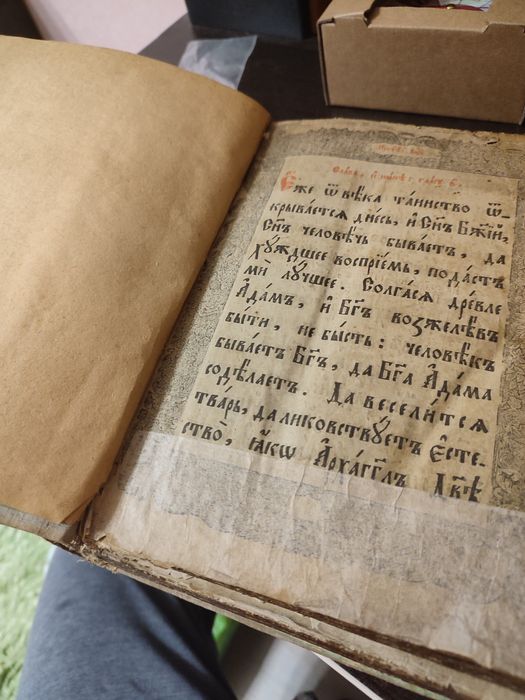 Сла́ва, и҆ ны́нѣ: гла́съ в҃.
Е҆́же ѿ вѣ́ка та́инство ѿ-
крыва́ется дне́сь, и҆ Сн҃ъ Бж҃їй,
Сн҃ъ человѣ́чь быва́етъ, да
хꙋ́ждшее воспрїе́мь, пода́стъ
мѝ лꙋ́чшее. Солга́ся дре́вле
А҆да́мъ, и҆ Бг҃ъ возжелѣ́въ
бы́ти, не бы́сть: человѣ́къ
быва́етъ Бг҃ъ, да Бг҃а А҆да́ма
содѣ́лаетъ. Да весели́тся
тва́рь, да ликовствꙋ́етъ є҆сте-
ство̀, ꙗ҆́кѡ А҆рха́гг҃лъ Дв҃ѣ